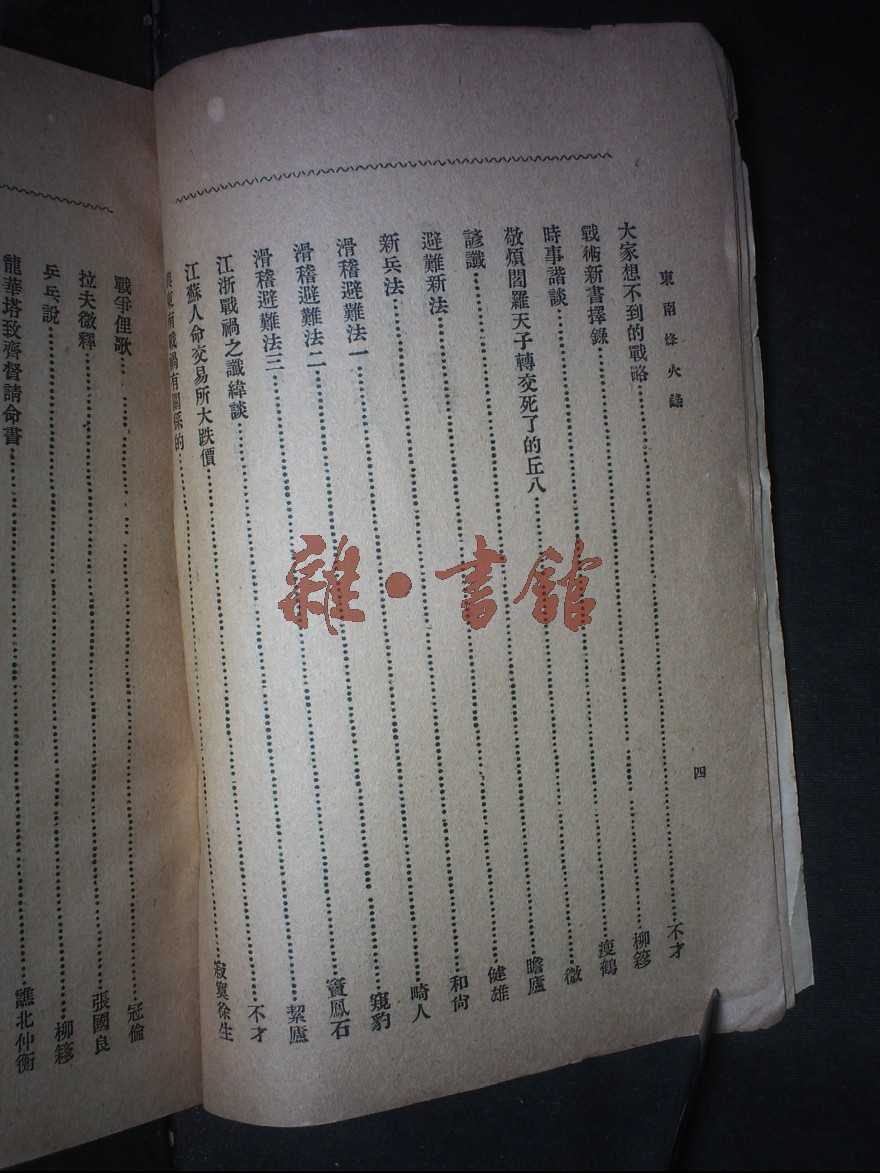 東南烽火錄
四
大家想不到的戰略……不才
戰術新書擇錄……柳簃
時事諧談……瘦鶴
敬煩閻羅天子轉交死了的丘八……微
諺讖……瞻廬
避難新法……健雄
新兵法……和尙
滑稽避難法一……畸人
滑稽避難法二……窺豹
滑稽避難法三……竇鳳石
江浙戰禍之讖緯談……絜廬
江蘇人命交易所大跌價……不才
東南戰禍有關係的……寂寞徐生
戰爭俚歌……冠倫
拉夫微釋……張國良
乒乓說……柳簃
龍華塔致齊督請命書……譙北仲衡
雜·書館